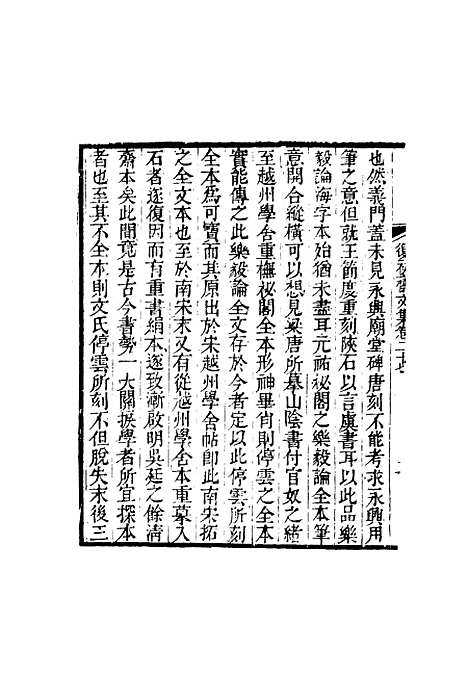 也然義門蓋未見永興廟堂碑唐刻不能考求永興用
筆之意但就王節度重刻陝石以言虞書耳以此品樂
毅論海字本始猶未盡耳元祐祕閣之樂毅論全本筆
意開合縱橫可以想見梁唐所摹山陰書付官奴之緒
至越州學舍重橅祕閣全本形神畢肖則停雲之全本
實能傳之此樂毅論全文存於今者定以此停雲所刻
全本爲可寶而其原出於宋越州學舍帖卽此南宋拓
之全文本也至於南宋末又有從越州學舍本重摹入
石者遂復因而有重書絹本遂致漸啟明吳廷之餘淸
齋本矣此間竟是古今書勢一大關捩學者所宜探本
者也至其不全本則文氏停雲所刻不但脫失末後三